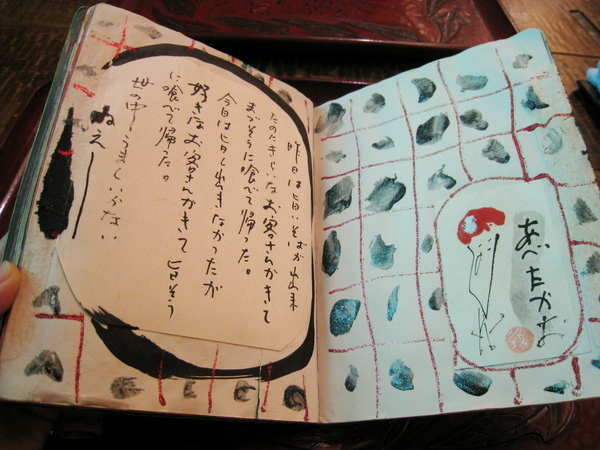 昨日は旨いそばが出来
たのにきらいなお客さんがきて
まずそうに喰べて帰った。
今日は旨く出きなかったが
好きなお客さんがきて旨そう
に喰べて帰った。
世の中うまくいかない
ねえー
あべたかお